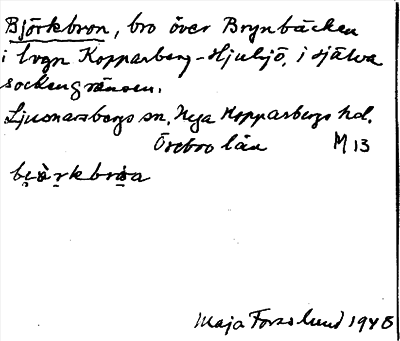 Björkbron, bro över Brynbäcken
i lvgn Kopparberg-Hjulsjö, i själva
sockengränsen.
Ljusnarsbergs sn. Nya Kopparbergs hd.
Örebro län M 13
Maja Forsslund 1948